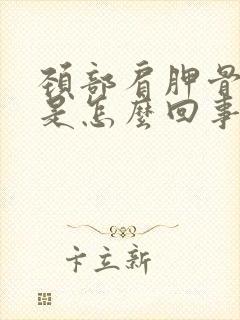 頚部肩胛骨
是怎麼回事
卞立新